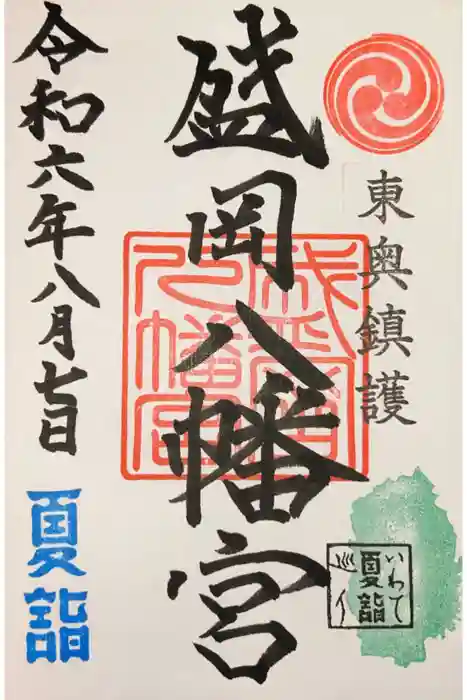 東奥鎮護
盛岡八幡宮
令和六年八月七日
夏詣
いわて
夏詣
巡り